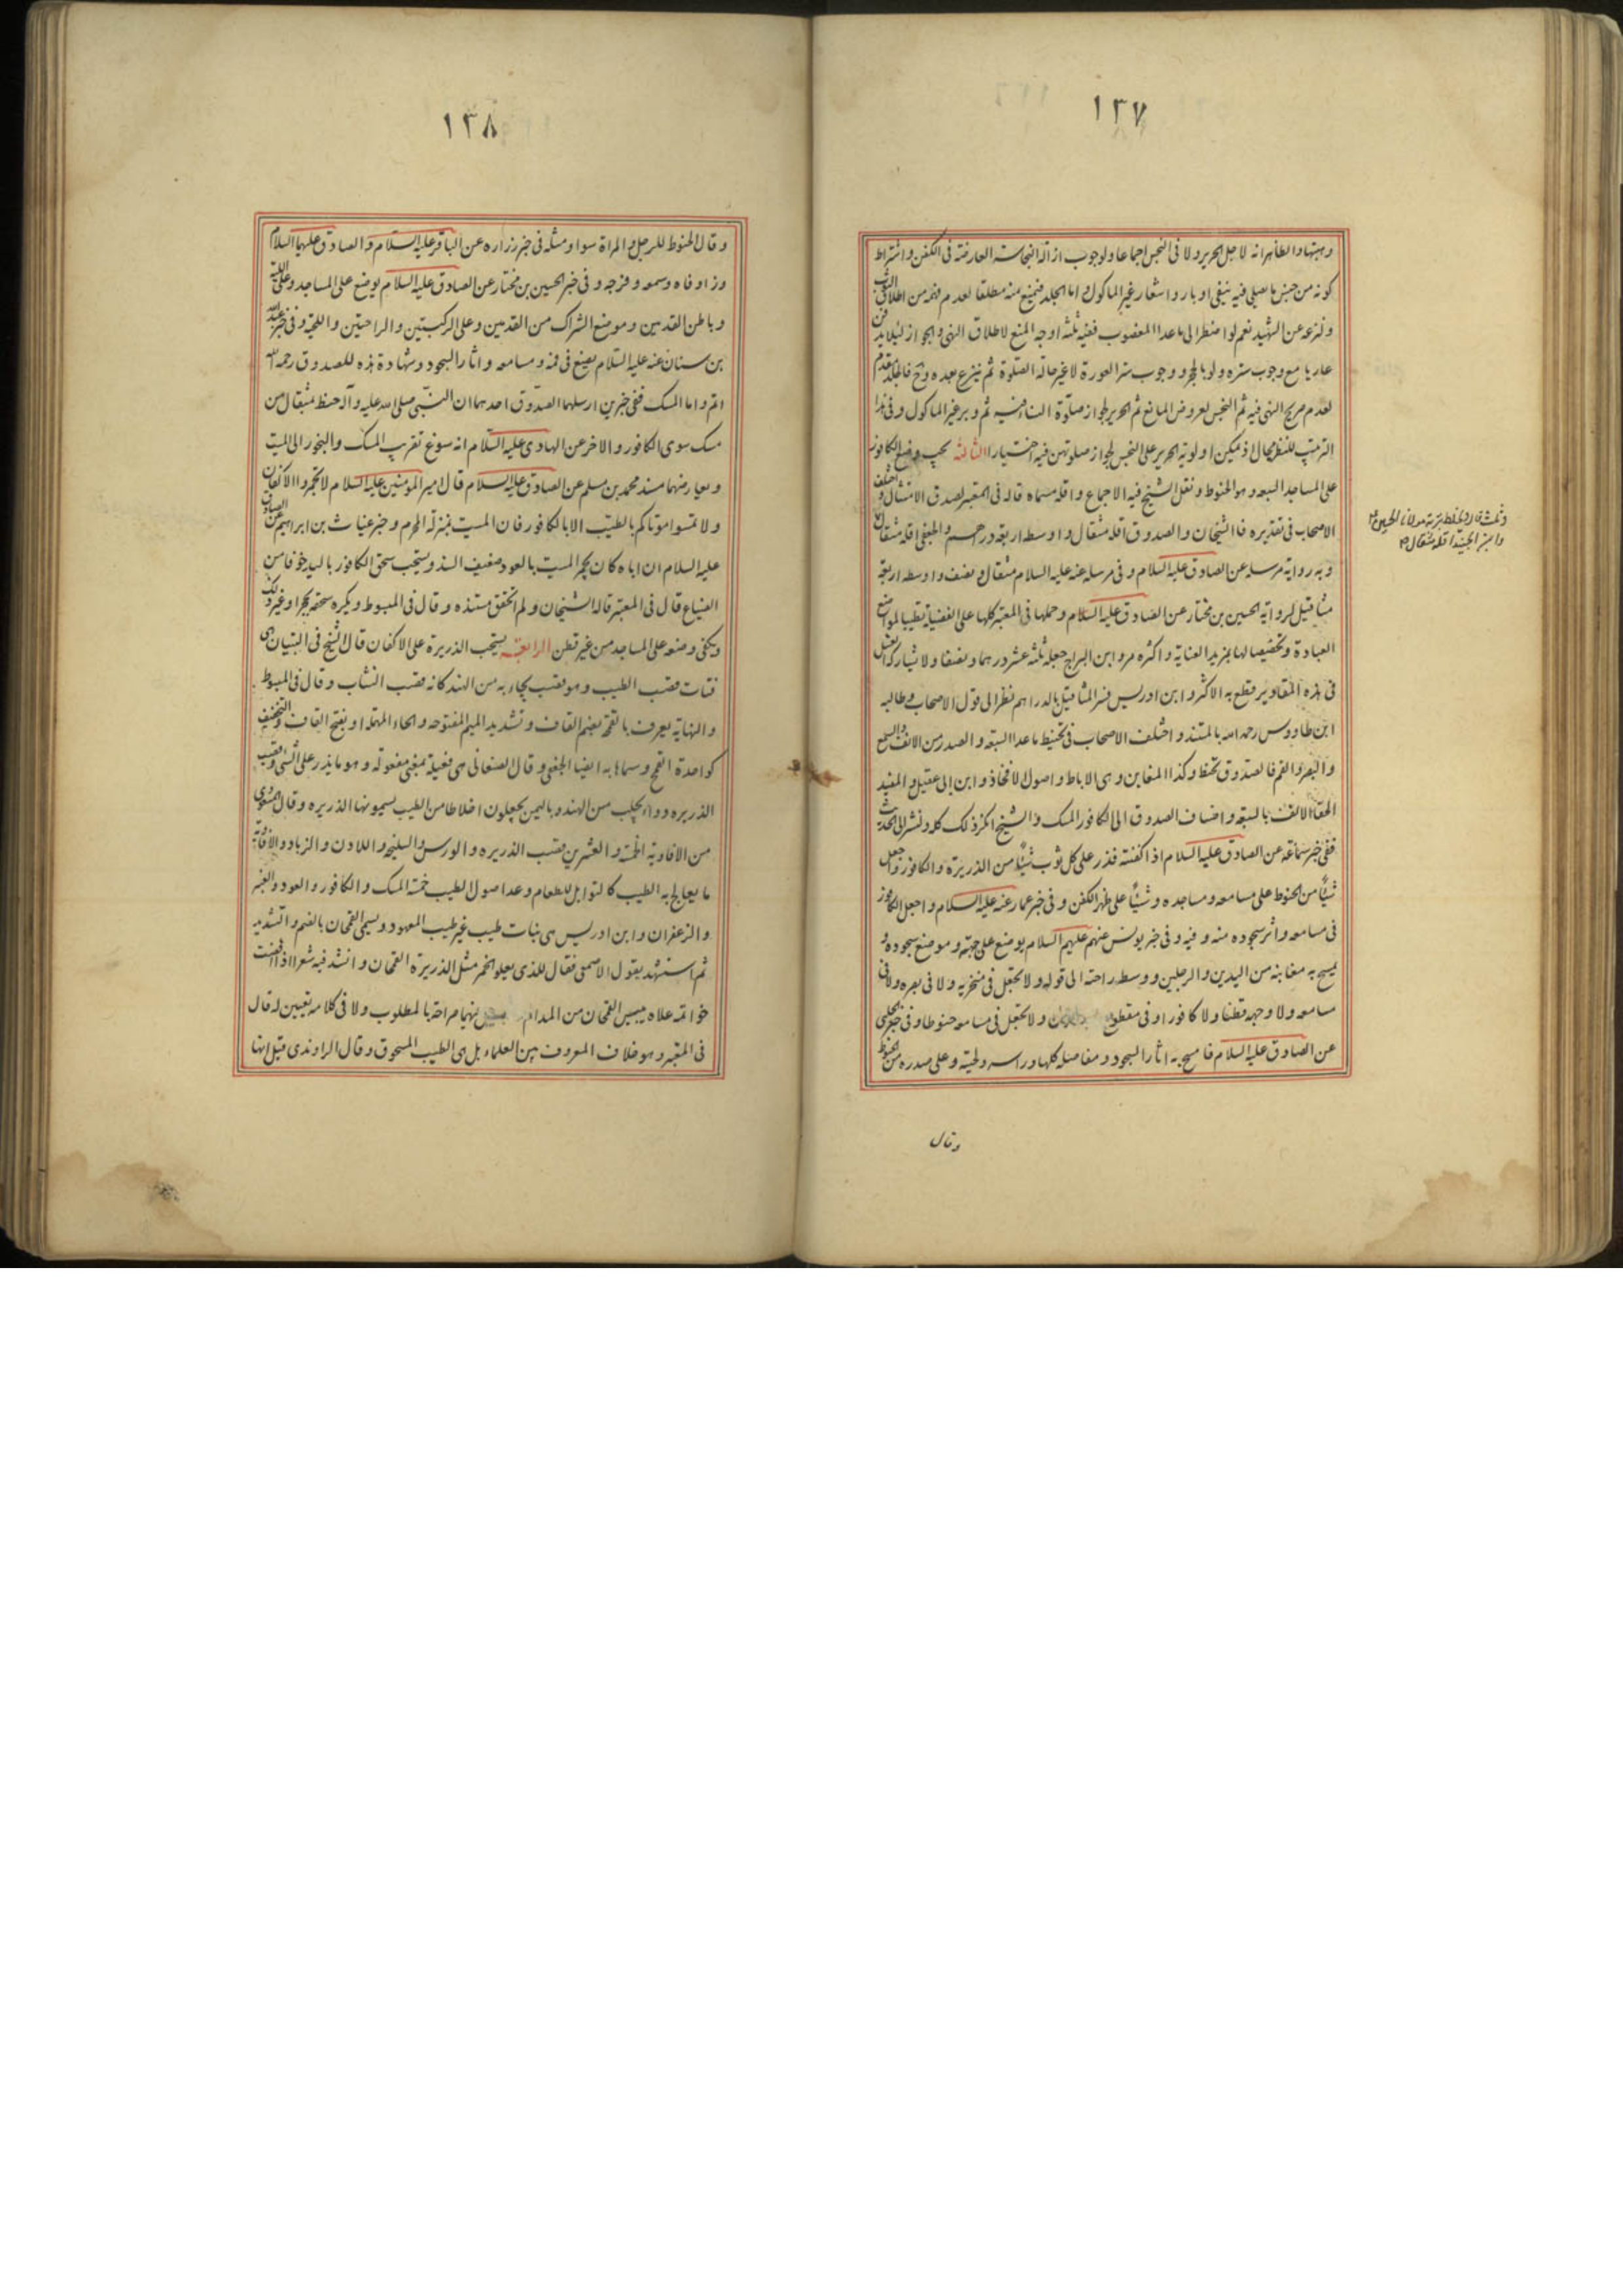 ١٣٧
وهبتها والظاهر انه لاجل الحرير ولا في النجس اجماعا ولوجوب ازالة النجاسة العارضة في الكفن واشتراط
كونه من جنس ما يصلي فيه ينفي اوبار واشعار غير الماكول واما الجلد فيمنع منه مطلقا لعدم فهمه من اطلاق الثوب
ولنزعه عن الشهيد نعم لو اضطر الى ما عدا المغصوب ففيه ثلثة اوجه المنع لاطلاق النهي والجواز لئلا يدفن
عاريا مع وجوب ستره ولو بالحجر ووجوب ستر العورة لا غير حالة الصلوة ثم ينزع بعده وح فالجلد مقدم
لعدم صريح النهي فيه ثم النجس لعروض المانع ثم الحرير لجواز صلوة النساء فيه ثم وبر غير الماكول وفي هذا
الترتيب للنظر مجال اذ يمكن اولوية الحرير على النجس لجواز صلوتهن فيه اختيارا الثالثة يجب وضع الكافور
على المساجد السبعة وهو الحنوط ونقل الشيخ فيه الاجماع واقله مسماه قاله في المعتبر لصدق الامتثال واختلف
الاصحاب في تقديره فالشيخان والصدوق اقله مثقال واوسطه اربعة دراهم والجعفي اقله مثقال
وبه رواية مرسلة عن الصادق عليه السلام وفي مرسلة عنه عليه السلام مثقال ونصف واوسطه اربعة
مثاقيل لرواية الحسين بن مختار عن الصادق عليه السلام وحملها في المعتبر كلها على الفضيلة تطييبا لمواضع
العبادة وتخصيصا لها بمزيد العناية واكثره مر وابن البراج جعله ثلثة عشر درهما ونصفا ولا يشاركه الغسل
في هذه المقادير قطع به الاكثر وابن ادريس فسر المثاقيل بالدراهم نظرا الى قول الاصحاب وطالبه
ابن طاووس رحمه الله بالمستند واختلف الاصحاب في تحنيط ما عدا السبعة والصدر من الانف والسمع
والبصر والفم فالصدوق تحنط وكذا المغابن وهي الاباط واصول الافخاذ وابن ابي عقيل والمفيد
الحقا الانف بالسبعة واضاف الصدوق الى الكافور المسك والشيخ انكر ذلك كله ولنشر الى الحديث
ففي خبر سماعة عن الصادق عليه السلام اذا كفنته فذر على كل ثوب شيئا من الذريرة والكافور وجعل
شيئا من الحنوط على مسامعه ومساجده وشيئا على ظهر الكفن وفي خبر عمار عنه عليه السلام واجعل الكافور
في مسامعه واثر سجوده منه وفيه وفي خبر يونس عنهم عليهم السلام يوضع على جبهته وموضع سجوده و
يمسح به مغابنه من اليدين والرجلين ووسط راحته الى قوله ولا تجعل في منخريه ولا في بصره ولا في
مسامعه ولا وجهه قطنا ولا كافورا وفي مقطوع ولا تجعل في مسامعه حنوطا وفي خبر الحلبي
عن الصادق عليه السلام فامسح به اثار السجود ومفاصله كلها وراسه ولحيته وعلى صدره من الحنوط
وثلث قال ويخلط بتربة مولانا الحسين ع
وابن الجنيد اقله مثقال
وقال
١٣٨
وقال الحنوط للرجل والمراة سواء ومثله في خبر زراره عن الباقر عليه السلام والصادق عليهما السلام
وزاد فاه وسمعه وفرجه وفي خبر الحسين بن مختار عن الصادق عليه السلام يوضع على المساجد وعلى اللبة
وباطن القدمين وموضع الشراك من القدمين وعلى الركبتين والراحتين واللحية وفي خبر عبد الله
بن سنان عنه عليه السلام يضع في فمه ومسامعه واثار السجود وشهادة هذه للصدوق رحمه الله
اتم واما المسك ففي خبرين ارسلهما الصدوق احدهما ان النبي صلى الله عليه وآله حنط بمثقال من
مسك سوى الكافور والاخر عن الهادي عليه السلام انه سوغ تقريب المسك والبخور الى الميت
ويعارضهما مسند محمد بن مسلم عن الصادق عليه السلام قال امير المؤمنين عليه السلام لا تجمروا الاكفان
ولا تمسوا موتاكم بالطيب الا بالكافور فان الميت بمنزلة المحرم وخبر غياث بن ابراهيم عن الصادق
عليه السلام ان اباه كان يجمر الميت بالعود ضعيف السند ويستحب سحق الكافور باليد خوفا من
الضياع قال في المعتبر قاله الشيخان ولم اتحقق مستنده وقال في المبسوط ويكره سحقه بحجر او غير ذلك
ويكفي وضعه على المساجد من غير قطن الرابعة يستحب الذريرة على الاكفان قال الشيخ في التبيان هي
فتات قصب الطيب وهو قصب يجاء به من الهند كانه قصب النشاب وقال في المبسوط
والنهاية يعرف بالقمحة بضم القاف وتشديد الميم المفتوحه والحاء المهملة او بفتح القاف والتخفيف
كواحدة القمح وسماها به ايضا الجعفي وقال الصنعاني هي فعيلة بمعنى مفعولة وهو ما يذر على الشي وقصب
الذريره دواء يجلب من الهند وباليمن يجعلون اخلاطا من الطيب يسمونها الذريره وقال المسعودي
من الافاوية الخمسة والعشرين قصب الذريره والورس والسليخه واللادن والزباد والافاوية
ما يعالج به الطيب كالتوابل للطعام وعد اصول الطيب خمسة المسك والكافور والعود والعنبر
والزعفران وابن ادريس هي نبات طيب غير طيب المعهود ويسمى القمحان بالضم والتشديد
ثم استشهد بقول الاصمعي فقال للذي يعلو الخمر مثل الذريرة القمحان وانشد فيه شعرا اذا فضت
خواتمه علاه يبيس القمحان من المدام صراحة بالمطلوب ولا في كلامه تعيين له قال
في المعتبر وهو خلاف المعروف بين العلماء بل هي الطيب المسحوق وقال الراوندي قيل انها